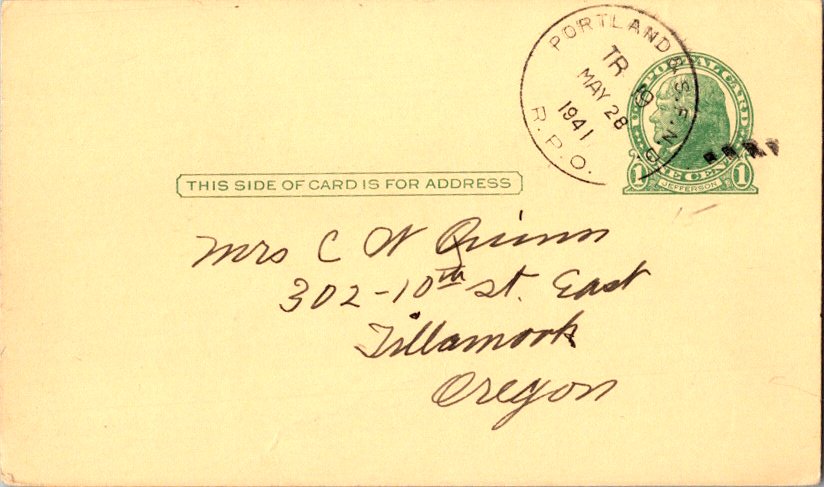 PORTLAND & S.F. N.D.
TR 9
MAY 28
1941
R.P.O.
U.S. POSTAL CARD
1 ONE CENT 1
JEFFERSON
THIS SIDE OF CARD IS FOR ADDRESS
Mrs C W Quinn
302-10th St. East
Tillamook
Oregon